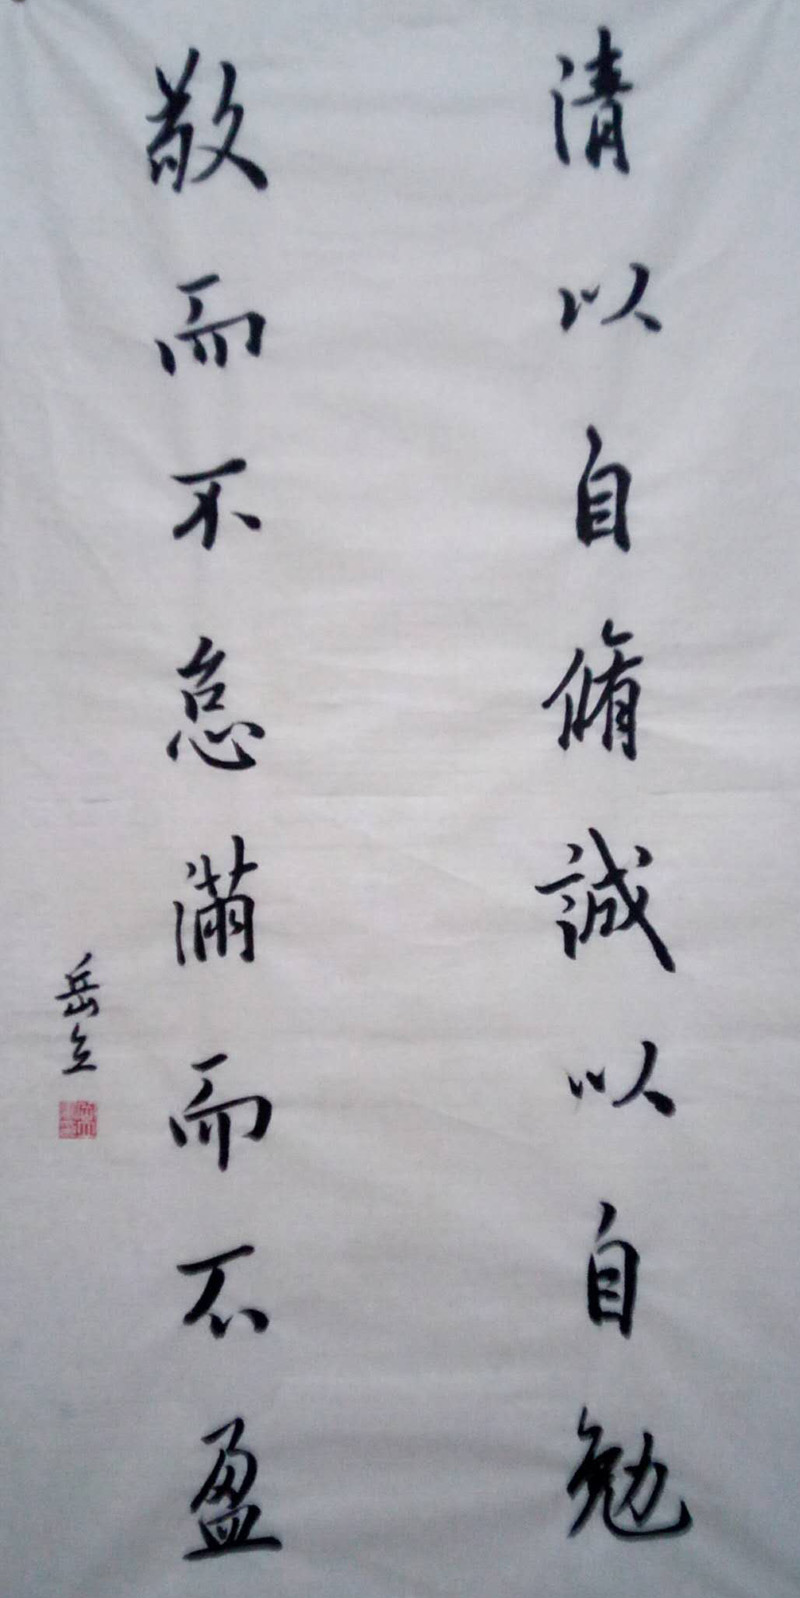 清以自脩誠以自勉
敬而不怠滿而不盈
岳立